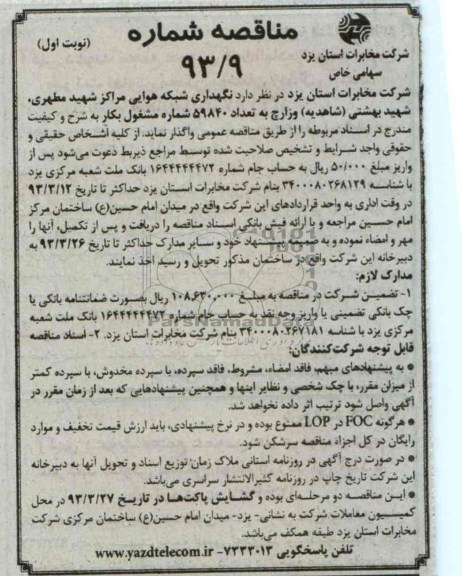 مناقصه شماره
۹۳/۹
(نوبت اول)
شرکت مخابرات استان یزد
سهامی خاص
شرکت مخابرات استان یزد در نظر دارد نگهداری شبکه هوایی مراکز شهید مطهری،
شهید بهشتی (شاهدیه) وزارچ به تعداد ۵۹۸۴۰ شماره مشغول بکار به شرح و کیفیت
مندرج در اسناد مربوطه را از طریق مناقصه عمومی واگذار نماید. از کلیه اشخاص حقیقی و
حقوقی واجد شرایط و تشخیص صلاحیت شده توسط مراجع ذیربط دعوت می‌شود پس از
واریز مبلغ ۵۰/۰۰۰ ریال به حساب جام شماره ۱۶۴۴۴۴۴۴۷۲ بانک ملت شعبه مرکزی یزد
با شناسه ۳۴۰۰۰۸۰۲۶۸۱۲۹ بنام شرکت مخابرات استان یزد حداکثر تا تاریخ ۹۳/۳/۱۲
در وقت اداری به واحد قراردادهای این شرکت واقع در میدان امام حسین(ع) ساختمان مرکز
امام حسین مراجعه و با ارائه فیش بانکی اسناد مناقصه را دریافت و پس از تکمیل، آنها را
مهر و امضاء نموده و به ضمیمه پیشنهاد خود و سایر مدارک حداکثر تا تاریخ ۹۳/۳/۲۶ به
دبیرخانه این شرکت واقع در ساختمان مذکور تحویل و رسید اخذ نمایند.
مدارک لازم:
۱- تضمین شرکت در مناقصه به مبلغ ۱۰۸,۶۳۰,۰۰۰ ریال بصورت ضمانتنامه بانکی یا
چک بانکی تضمینی یا واریز وجه نقد به حساب جام شماره ۱۶۴۴۴۴۴۴۷۲ بانک ملت شعبه
مرکزی یزد با شناسه ۳۴۰۰۰۸۰۲۶۷۱۸۱ بنام شرکت مخابرات استان یزد. ۲- اسناد مناقصه
قابل توجه شرکت‌کنندگان:
● به پیشنهادهای مبهم، فاقد امضاء، مشروط، فاقد سپرده، با سپرده مخدوش، با سپرده کمتر
از میزان مقرر، با چک شخصی و نظایر اینها و همچنین پیشنهادهایی که بعد از زمان مقرر در
آگهی واصل شود ترتیب اثر داده نخواهد شد.
● هرگونه FOC در LOP ممنوع بوده و در نرخ پیشنهادی، باید ارزش قیمت تخفیف و موارد
رایگان در کل اجزاء مناقصه سرشکن شود.
● در صورت درج آگهی در روزنامه استانی ملاک زمان توزیع اسناد و تحویل آنها به دبیرخانه
این شرکت تاریخ چاپ در روزنامه کثیرالانتشار سراسری می‌باشد.
● این مناقصه دو مرحله‌ای بوده و گشایش پاکت‌ها در تاریخ ۹۳/۳/۲۷ در محل
کمیسیون معاملات شرکت به نشانی- یزد- میدان امام حسین(ع) ساختمان مرکزی شرکت
مخابرات استان یزد طبقه همکف می‌باشد.
تلفن پاسخگویی ۷۲۳۳۰۱۳- www.yazdtelecom.ir